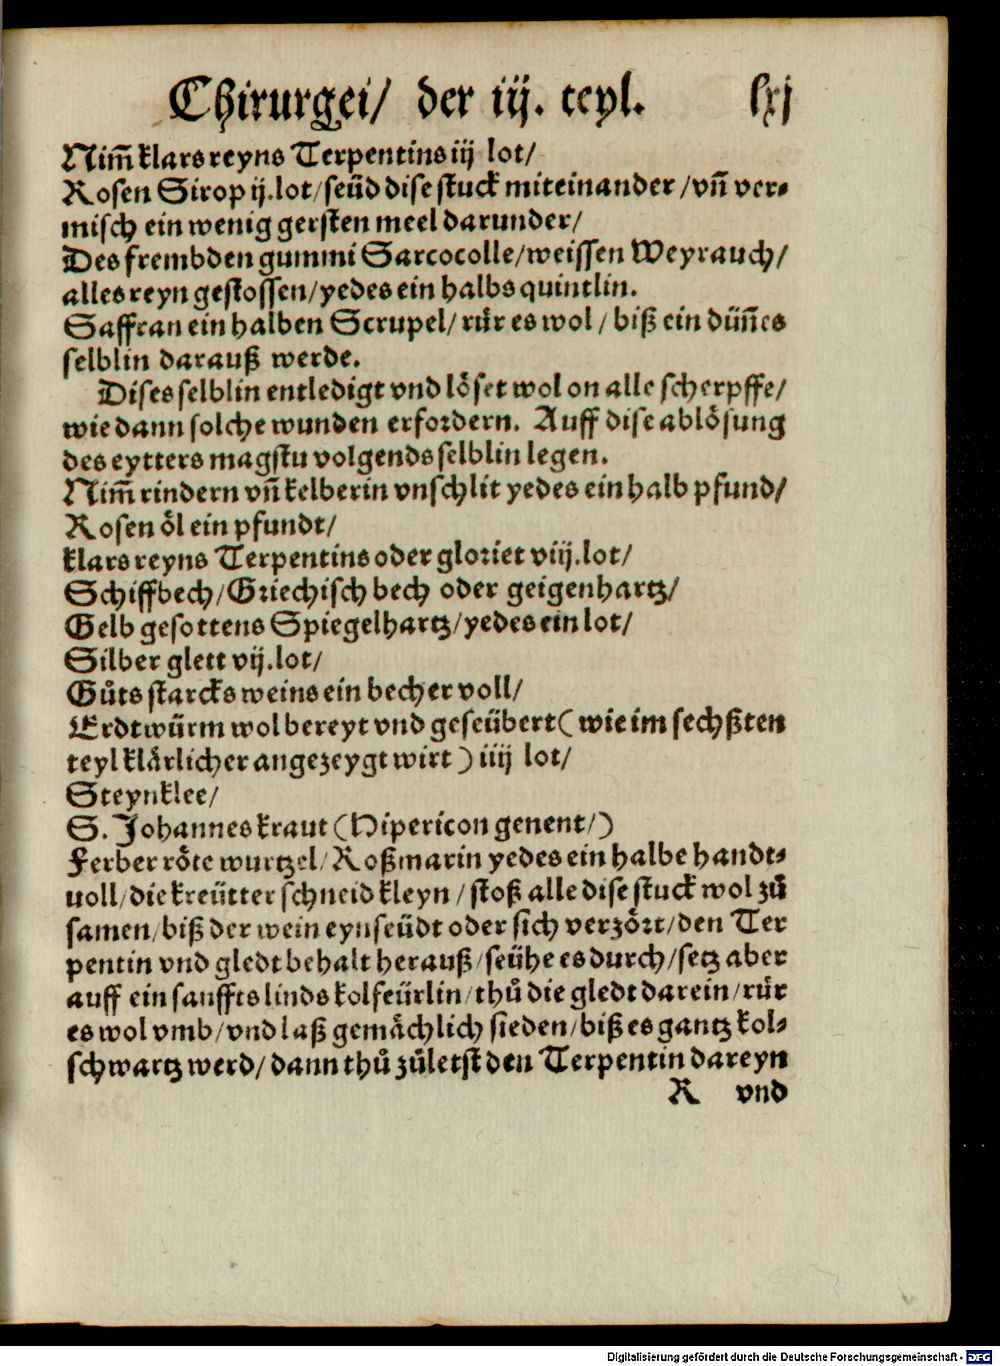 Chirurgei/ der iij. teyl. lxj
Nim̃ klars reyns Terpentins iij lot/
Rosen Sirop ij.lot/seüd dise stuck miteinander/vñ ver-
misch ein wenig gersten meel darunder/
Des frembden gummi Sarcocolle/weissen Weyrauch/
alles reyn gestossen/yedes ein halbs quintlin.
Saffran ein halben Scrupel/ruͤr es wol/biß ein düñes
selblin darauß werde.
Dises selblin entledigt vnd loͤset wol on alle scherpffe/
wie dann solche wunden erfordern. Auff dise abloͤsung
des eytters magstu volgends selblin legen.
Nim̃ rindern vñ kelberin vnschlit yedes ein halb pfund/
Rosen oͤl ein pfundt/
klars reyns Terpentins oder gloriet viij.lot/
Schiffbech/Griechisch bech oder geigenhartz/
Gelb gesottens Spiegelhartz/yedes ein lot/
Silber glett vij.lot/
Guͦts starcks weins ein becher voll/
Erdtwürm wol bereyt vnd geseübert(wie im sechßten
teyl klaͤrlicher angezeygt wirt) iiij lot/
Steynklee/
S. Johannes kraut (Hipericon genent/)
Ferber roͤte wurtzel/Roßmarin yedes ein halbe handt-
uoll/die kreütter schneid kleyn/stoß alle dise stuck wol zuͦ
samen/biß der wein eynseüdt oder sich verzoͤrt/den Ter
pentin vnd gledt behalt herauß/seühe es durch/setz aber
auff ein sanffts linds kolfeürlin/thuͦ die gledt darein/ruͤr
es wol vmb/vnd laß gemaͤchlich sieden/biß es gantz kol-
schwartz werd/dann thuͦ zuͦletst den Terpentin dareyn
R vnd
Digitalisierung gefördert durch die Deutsche Forschungsgemeinschaft - DFG